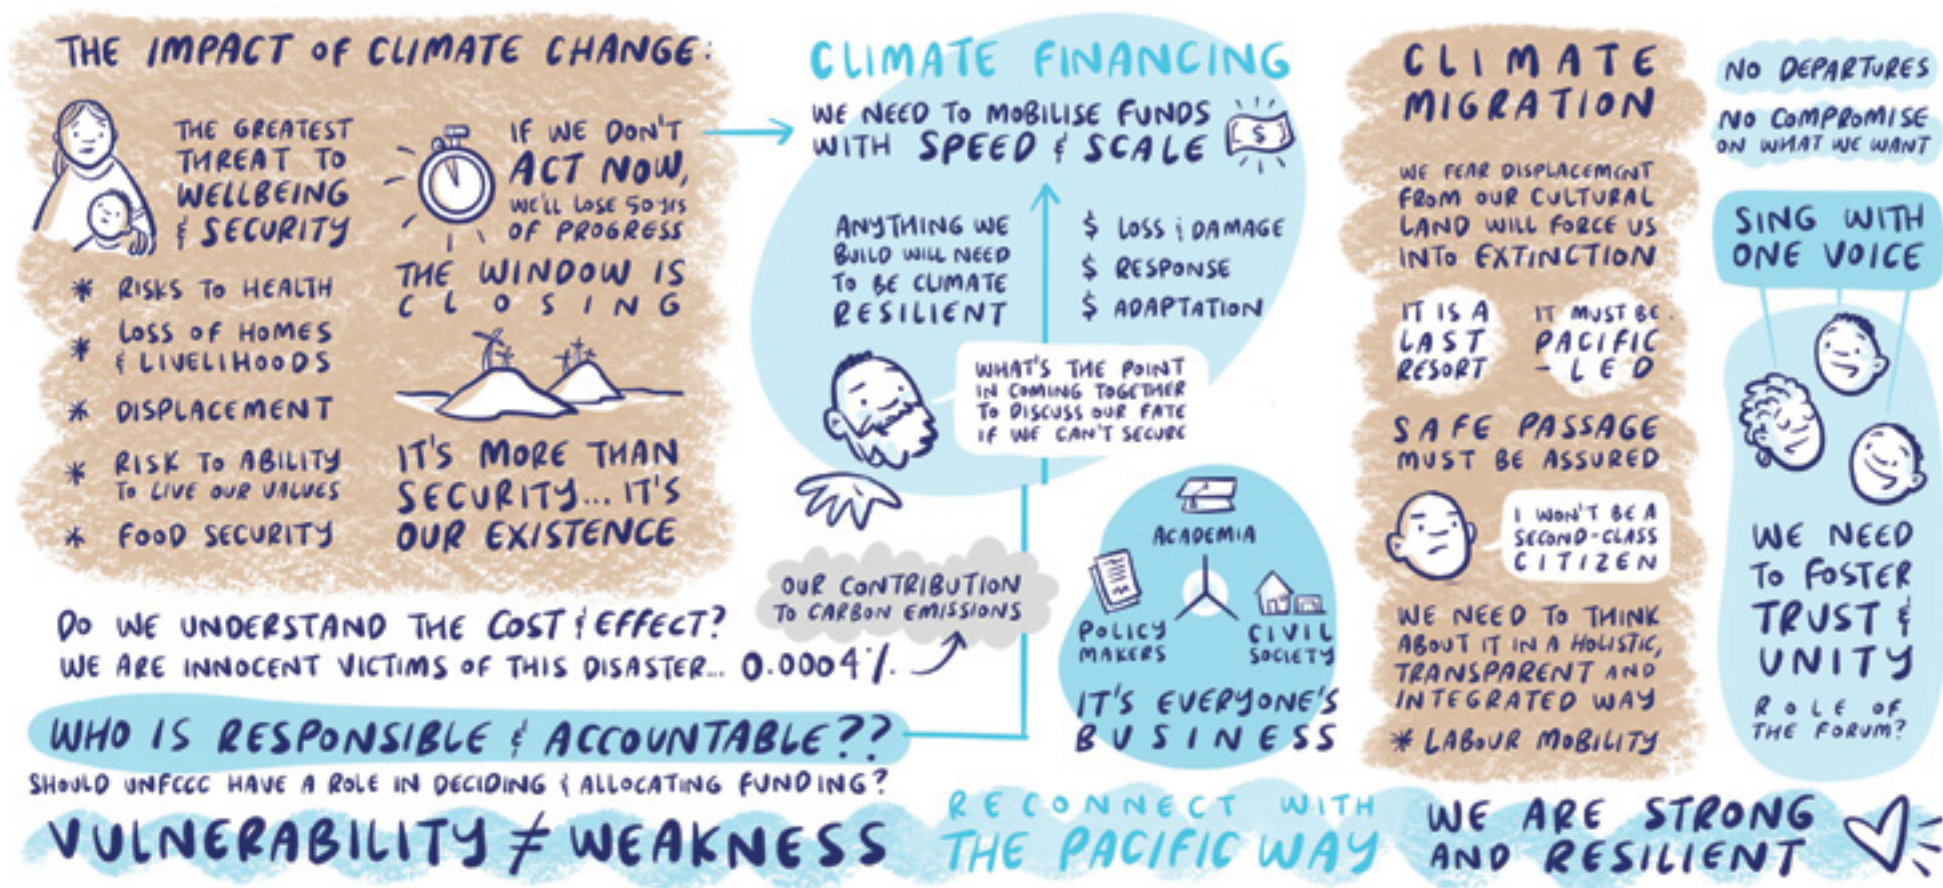 THE IMPACT OF CLIMATE CHANGE:
THE GREATEST
THREAT TO
WELLBEING
& SECURITY
* RISKS TO HEALTH
* LOSS OF HOMES
& LIVELIHOODS
* DISPLACEMENT
* RISK TO ABILITY
TO LIVE OUR VALUES
* FOOD SECURITY
IF WE DON'T
ACT NOW,
WE'LL LOSE 50 YRS
OF PROGRESS
THE WINDOW IS
CLOSING
IT'S MORE THAN
SECURITY... IT'S
OUR EXISTENCE
DO WE UNDERSTAND THE COST & EFFECT?
WE ARE INNOCENT VICTIMS OF THIS DISASTER... 0.0004%
OUR CONTRIBUTION
TO CARBON EMISSIONS
WHO IS RESPONSIBLE & ACCOUNTABLE??
SHOULD UNFCCC HAVE A ROLE IN DECIDING & ALLOCATING FUNDING?
CLIMATE FINANCING
WE NEED TO MOBILISE FUNDS
WITH SPEED & SCALE
$
ANYTHING WE
BUILD WILL NEED
TO BE CLIMATE
RESILIENT
$ LOSS & DAMAGE
$ RESPONSE
$ ADAPTATION
WHAT'S THE POINT
IN COMING TOGETHER
TO DISCUSS OUR FATE
IF WE CAN'T SECURE
ACADEMIA
POLICY
MAKERS
CIVIL
SOCIETY
IT'S EVERYONE'S
BUSINESS
CLIMATE
MIGRATION
WE FEAR DISPLACEMENT
FROM OUR CULTURAL
LAND WILL FORCE US
INTO EXTINCTION
IT IS A
LAST
RESORT
IT MUST BE
PACIFIC
-LED
SAFE PASSAGE
MUST BE ASSURED
I WON'T BE A
SECOND-CLASS
CITIZEN
WE NEED TO THINK
ABOUT IT IN A HOLISTIC,
TRANSPARENT AND
INTEGRATED WAY
* LABOUR MOBILITY
NO DEPARTURES
NO COMPROMISE
ON WHAT WE WANT
SING WITH
ONE VOICE
WE NEED
TO FOSTER
TRUST &
UNITY
ROLE OF
THE FORUM?
VULNERABILITY ≠ WEAKNESS
RECONNECT WITH
THE PACIFIC WAY
WE ARE STRONG
AND RESILIENT